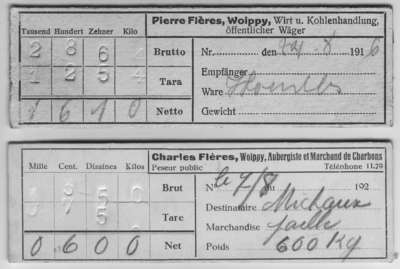 Pierre Flères, Woippy, Wirt u. Kohlenhandlung,
öffentlicher Wäger
Tausend Hundert Zehner Kilo
2 8 6 Brutto
Nr. den 24.8 1916
1 2 5 4 Tara
Empfänger
Ware
1 6 1 0 Netto
Gewicht
Charles Flères, Woippy, Aubergiste et Marchand de Charbons
Peseur public Téléphone 11.29
Mille Cent. Dizaines Kilos
Brut
N° le 7/8 du 192
Tare
Destinataire Michaux
Marchandise paille
0 6 0 0 Net
Poids 600 Kg